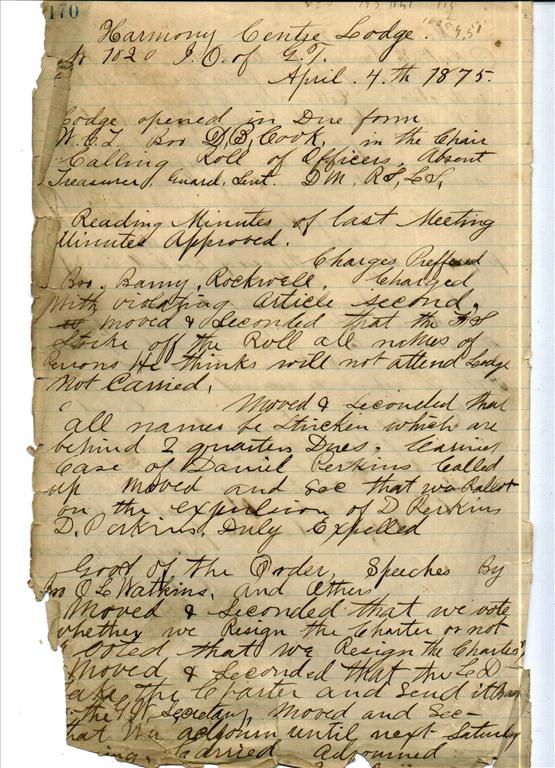 170
Harmony Centre Lodge.
No 1020 I.O. of G.T.
April. 4.th 1875.
Lodge opened in Due form
W.C.T. Bro D,B, Cook, in the Chair
Calling Roll of Officers, Absent
Treasurer, Guard, Sent. D M, R S, L S,
Reading Minutes of last Meeting
Minutes Approved.
Charges Preffered
Bro. Barny, Rockwell, Charged
With violating Article second.
Moved & Seconded that the F S
Strike off the Roll all names of
Persons He thinks will not attend Lodge
Not Carried,
Moved & seconded that
all names be Stricken which are
behind 2 quarters Dues. Carried
Case of Daniel Perkins Called
up Moved and Sec that we Ballot
on the expulsion of D Perkins
D. Perkins, Duly Expelled
Good of the Order, Speeches By
Bro O L Watkins, and Others
Moved & Seconded that we vote
whether we Resign the Charter or not
Voted that we Resign the Charter,
Moved & Seconded that the L D
take the Charter and Send it Back
the G W Secretary, Moved and Sec–
that We adjourn until next Saturday
Carried Adjourned